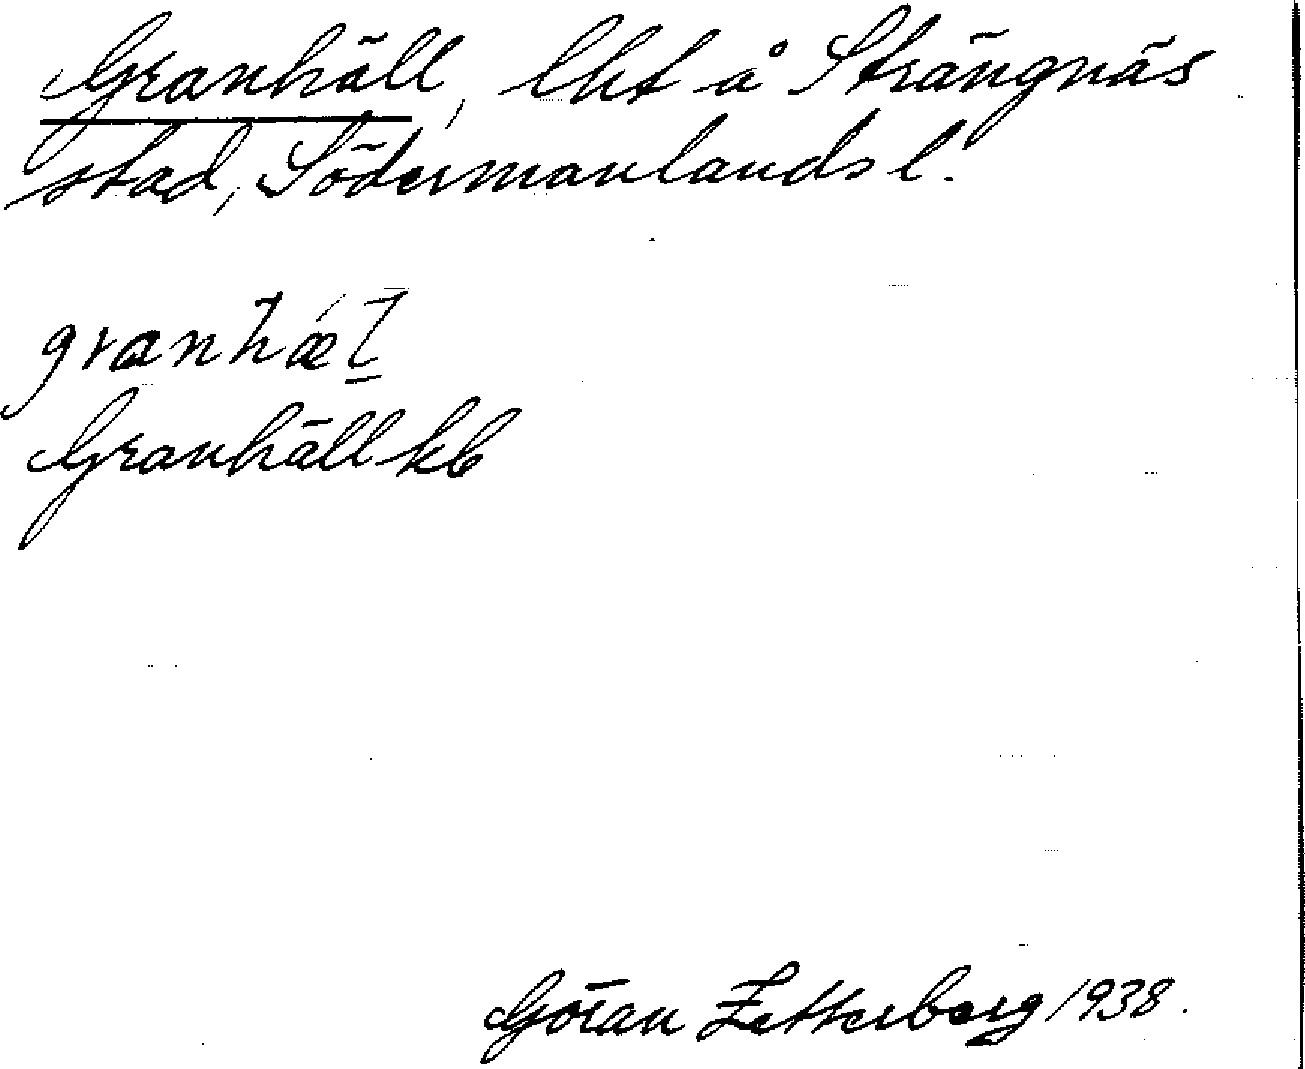 Granhäll, lht å Strängnäs
stad, Södermanlands l.
granhǽl̠
Granhäll kb
Göran Zetterberg 1938.